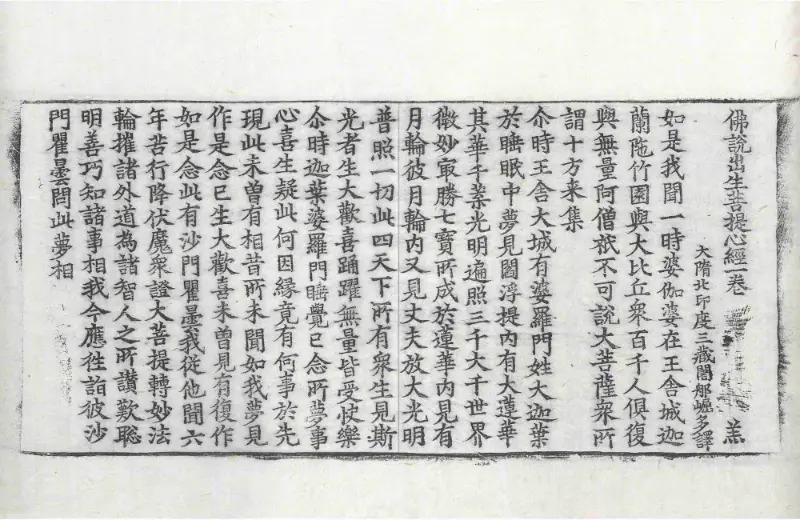 佛說出生菩提心經一卷　羔
大隋北印度三藏闍那崛多譯
如是我聞一時婆伽婆在王舍城迦
蘭陁竹園與大比丘衆百千人俱復
與無量阿僧祇不可說大菩薩衆所
謂十方来集
尒時王舍大城有婆羅門姓大迦葉
於睡眠中夢見閻浮提内有大蓮華
其華千葉光明遍照三千大千世界
微妙冣勝七寳所成於蓮華内見有
月輪彼月輪内又見丈夫放大光明
普照一切此四天下所有衆生見斯
光者生大歡喜踊躍無量皆受快樂
尒時迦葉婆羅門睡覺已念所夢事
心喜生疑此何因緣竟有何事於先
現此未曾有相昔所未聞如我夢見
作是念已生大歡喜未曾見有復作
如是念此有沙門瞿曇我從他聞六
年苦行降伏魔衆證大菩提轉妙法
輪摧諸外道為諸智人之所讃歎聡
明善巧知諸事相我今應往詣彼沙
門瞿曇問此夢相